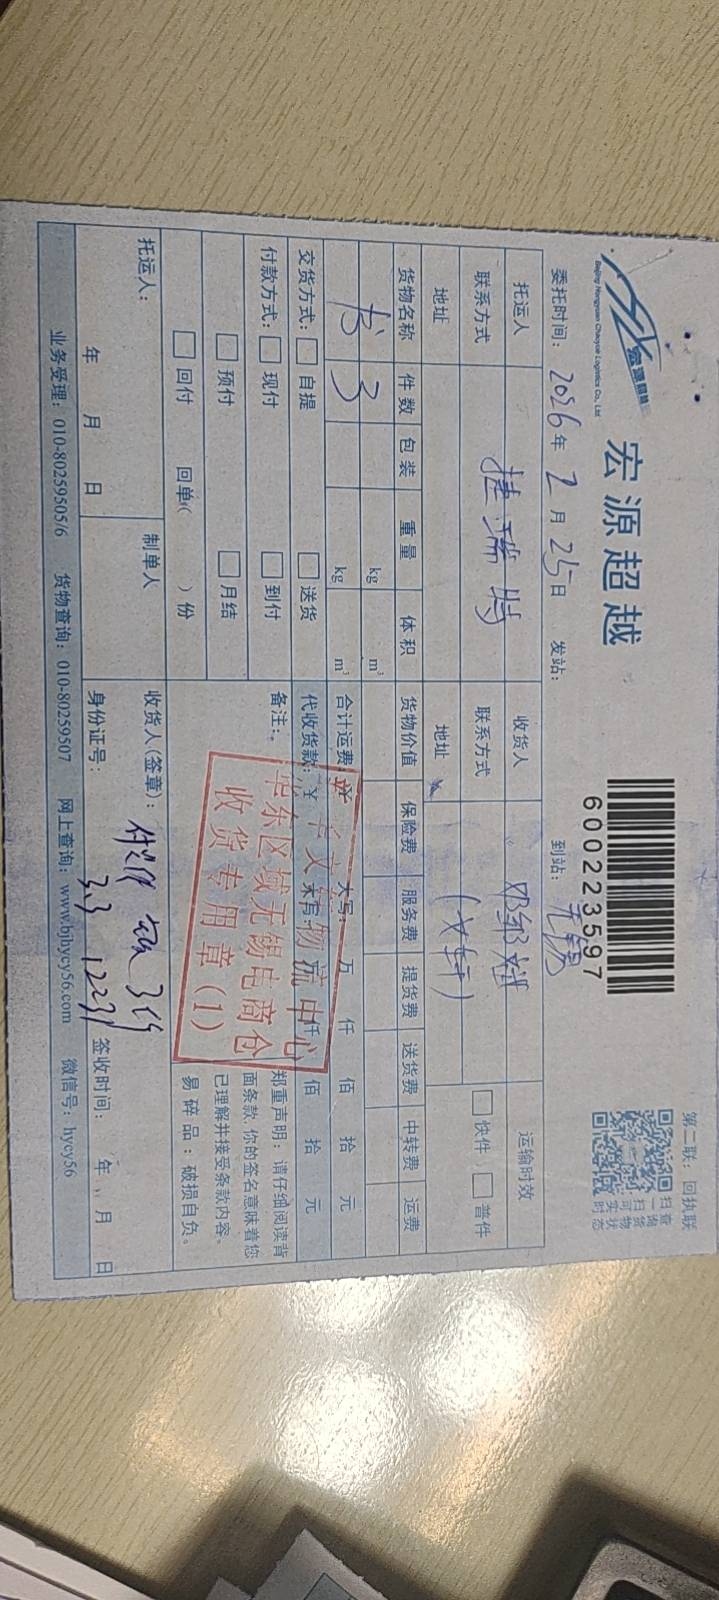 宏源超越
Beijing Hongyuan Chaoyue Logistics Co., Ltd.
宏源超越
600223597
第二联：回执联
扫一扫查询货物实时状态
委托时间：2026年2月25日 发站： 到站：无锡
托运人 捷瑞特 收货人 运输时效
联系方式 联系方式 快件 普件
地址 地址
货物名称 件数 包装 重量 体积 货物价值 保险费 服务费 提货费 送货费 中转费 运费
书 3 kg m³
kg m³ 合计运费：¥ 大写： 万 仟 佰 拾 元
交货方式： 自提 送货 代收货款：¥ 大写： 万 仟 佰 拾 元
付款方式： 现付 到付 备注：
预付 月结
回付 回单( )份
郑重声明：请仔细阅读背面条款，你的签名意味着您已理解并接受条款内容。
易碎品：破损自负。
物流中心
华东区域无锡电商仓
收货专用章(1)
托运人： 制单人 收货人(签章)：
年 月 日 身份证号： 签收时间： 年 月 日
3.3
业务受理：010-80259505/6 货物查询：010-80259507 网上查询：www.bjhycy56.com 微信号：hycy56